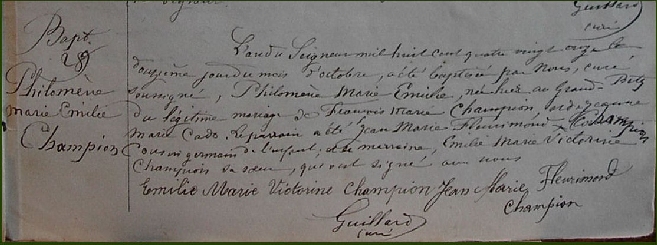 Guillard
curé
Bapt.
28e
Philomène
Marie Emilie
Champion
L'an du Seigneur mil huit cent quatre vingt onze le
douzième jour du mois d'octobre, a été baptisée par Nous, curé
soussigné, Philomène Marie Emilie, née hier au Grand-Betz
du légitime mariage de François Marie Champion et de Jeanne
Marie Cado. Le parrain a été Jean Marie Fleurimond Champion
Cousin germain de l'enfant, et la marraine, Emilie Marie Victorine
Champion sa sœur, qui ont signé avec nous
Emilie Marie Victorine Champion Jean Marie Fleurimond
Champion
Guillard
curé